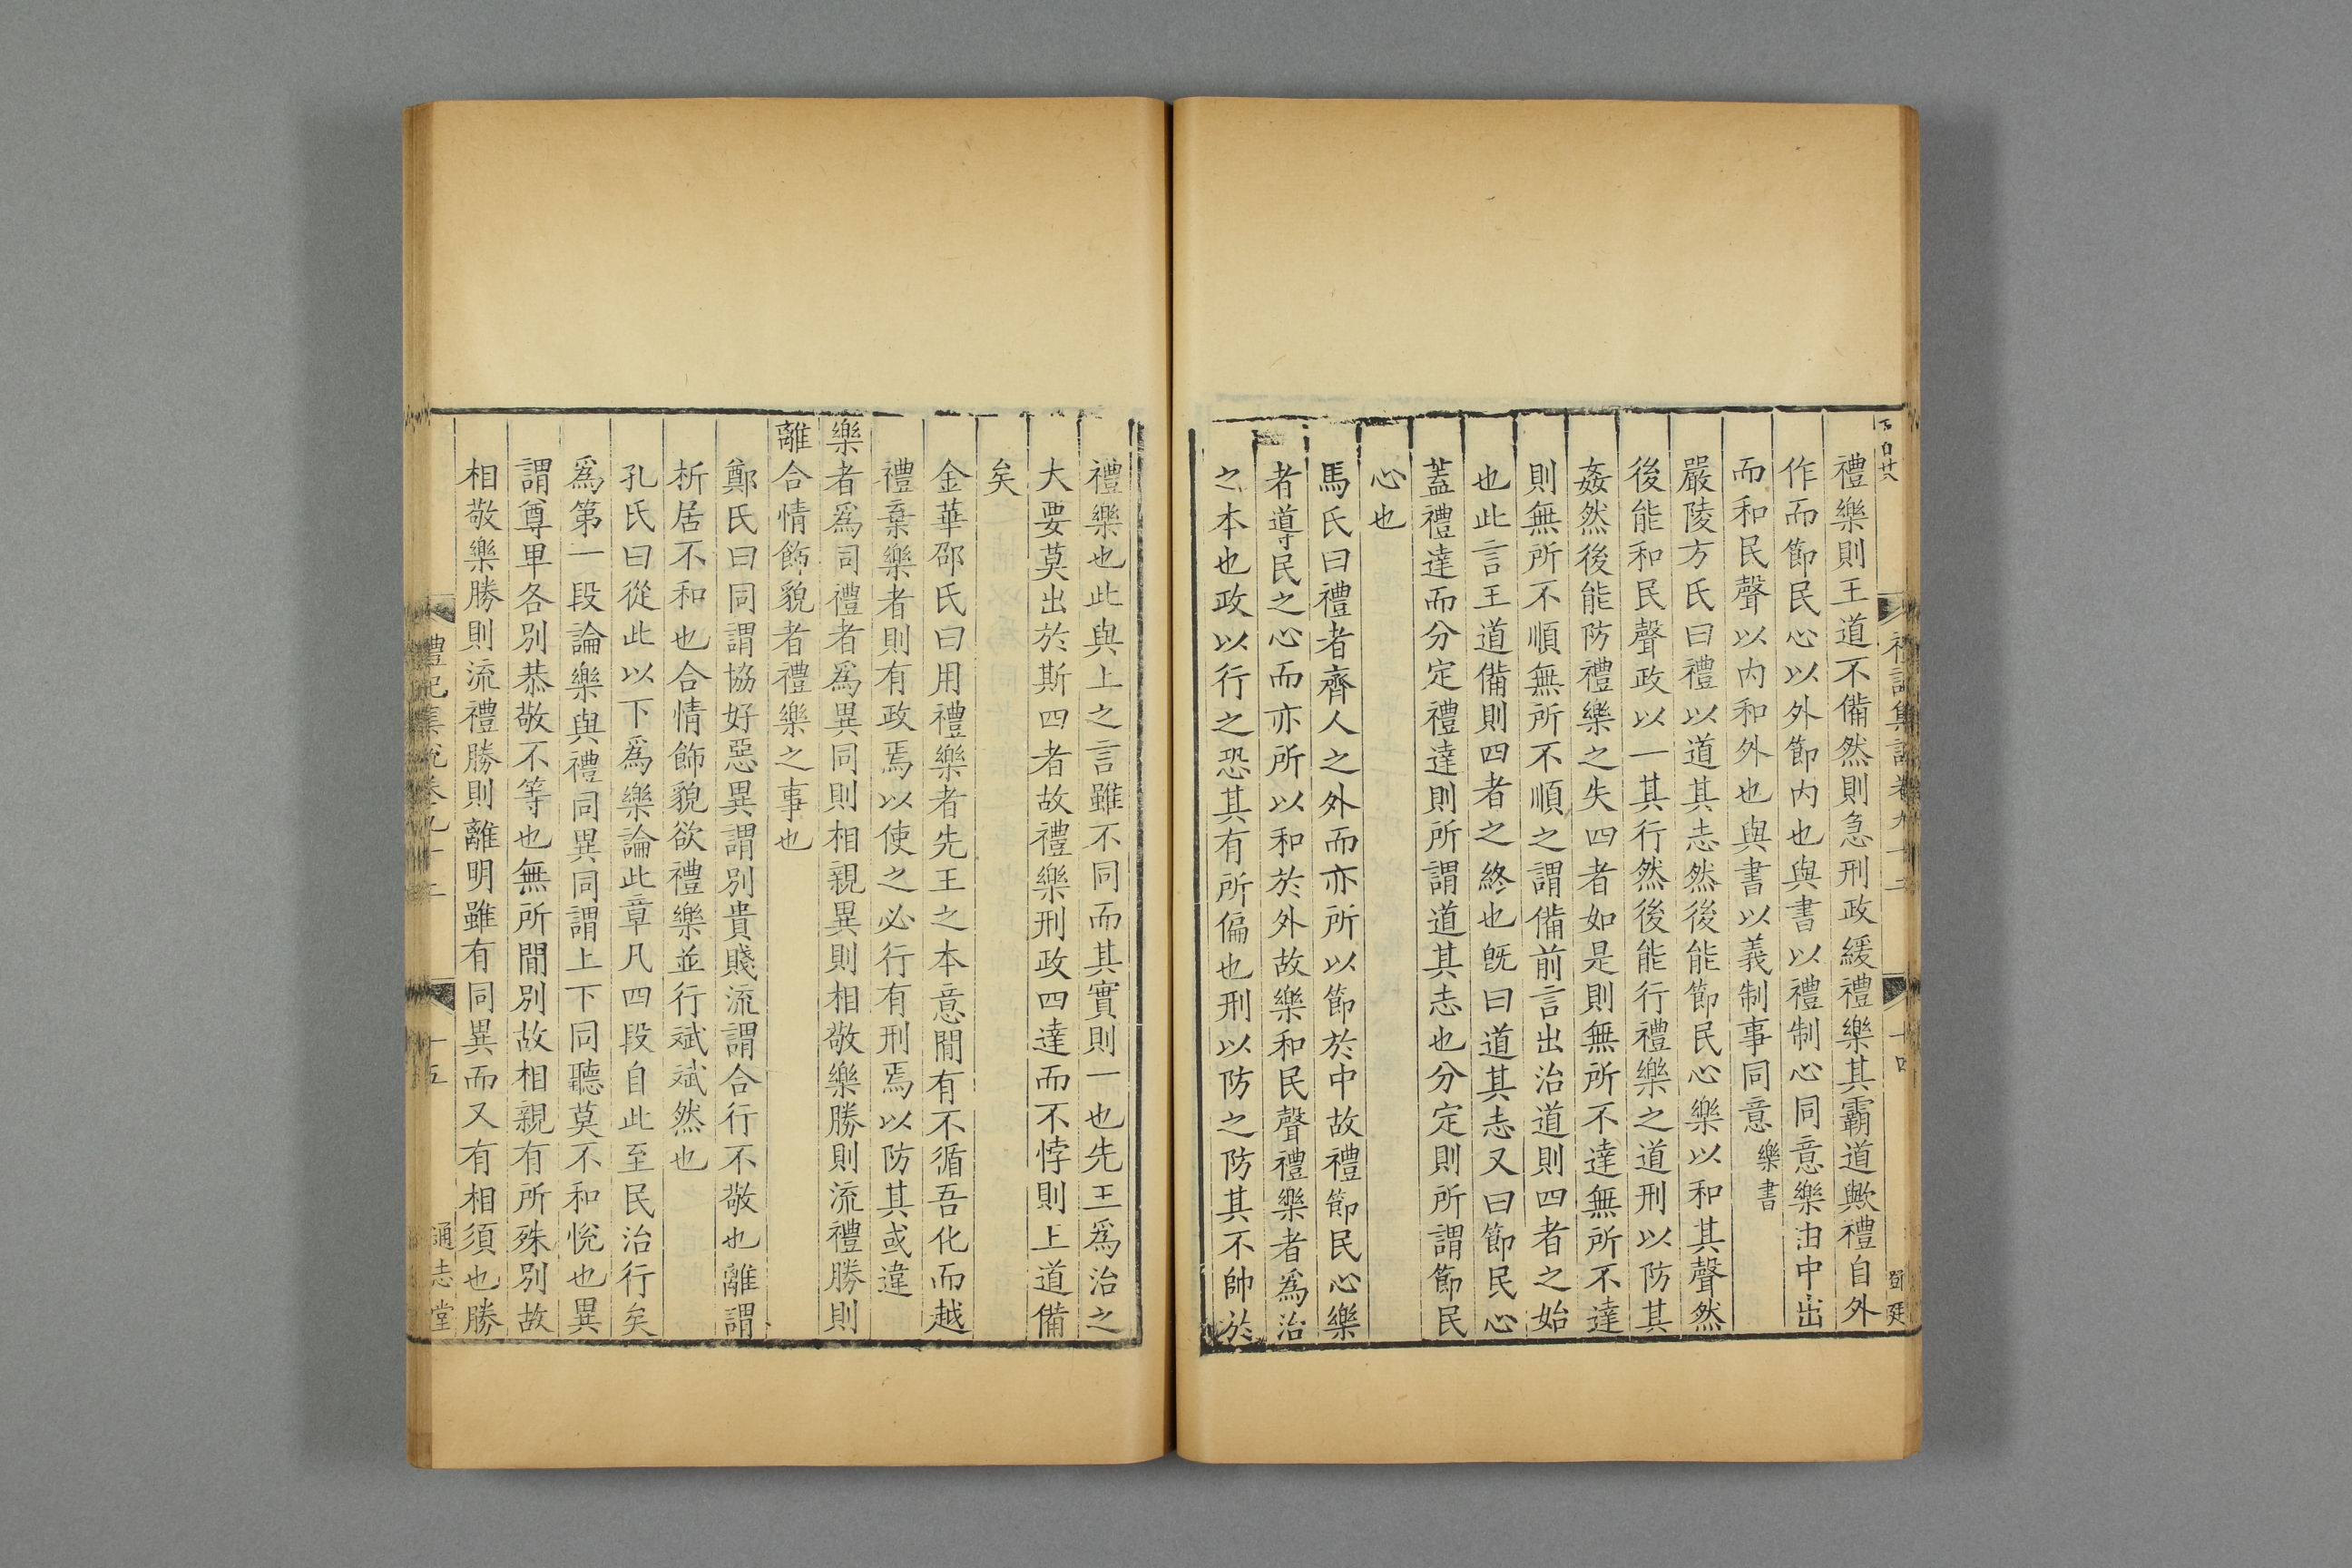 禮樂則王道不備然則急刑政緩禮樂其霸道歟禮自外
作而節民心以外節内也與書以禮制心同意樂由中出
而和民聲以内和外也與書以義制事同意樂書
嚴陵方氏曰禮以道其志然後能節民心樂以和其聲然
後能和民聲政以一其行然後能行禮樂之道刑以防其
姦然後能防禮樂之失四者如是則無所不達無所不達
則無所不順無所不順之謂備前言出治道則四者之始
也此言王道備則四者之終也旣曰道其志又曰節民心
蓋禮達而分定禮達則所謂道其志也分定則所謂節民
心也
馬氏曰禮者齊人之外而亦所以節於中故禮節民心樂
者導民之心而亦所以和於外故樂和民聲禮樂者爲治
之本也政以行之恐其有所偏也刑以防之防其不帥於
禮樂也此與上之言雖不同而其實則一也先王爲治之
大要莫出於斯四者故禮樂刑政四達而不悖則上道備
矣
金華邵氏曰用禮樂者先王之本意間有不循吾化而越
禮棄樂者則有政焉以使之必行有刑焉以防其或違
樂者爲同禮者爲異同則相親異則相敬樂勝則流禮勝則
離合情飾貌者禮樂之事也
鄭氏曰同謂協好惡異謂別貴賤流謂合行不敬也離謂
析居不和也合情飾貌欲禮樂並行斌斌然也
孔氏曰從此以下爲樂論此章凡四段自此至民治行矣
爲第一段論樂與禮同異同謂上下同聽莫不和悅也異
謂尊卑各別恭敬不等也無所間別故相親有所殊別故
相敬樂勝則流禮勝則離明雖有同異而又有相須也勝
禮記集說卷九十二
十五
通志堂